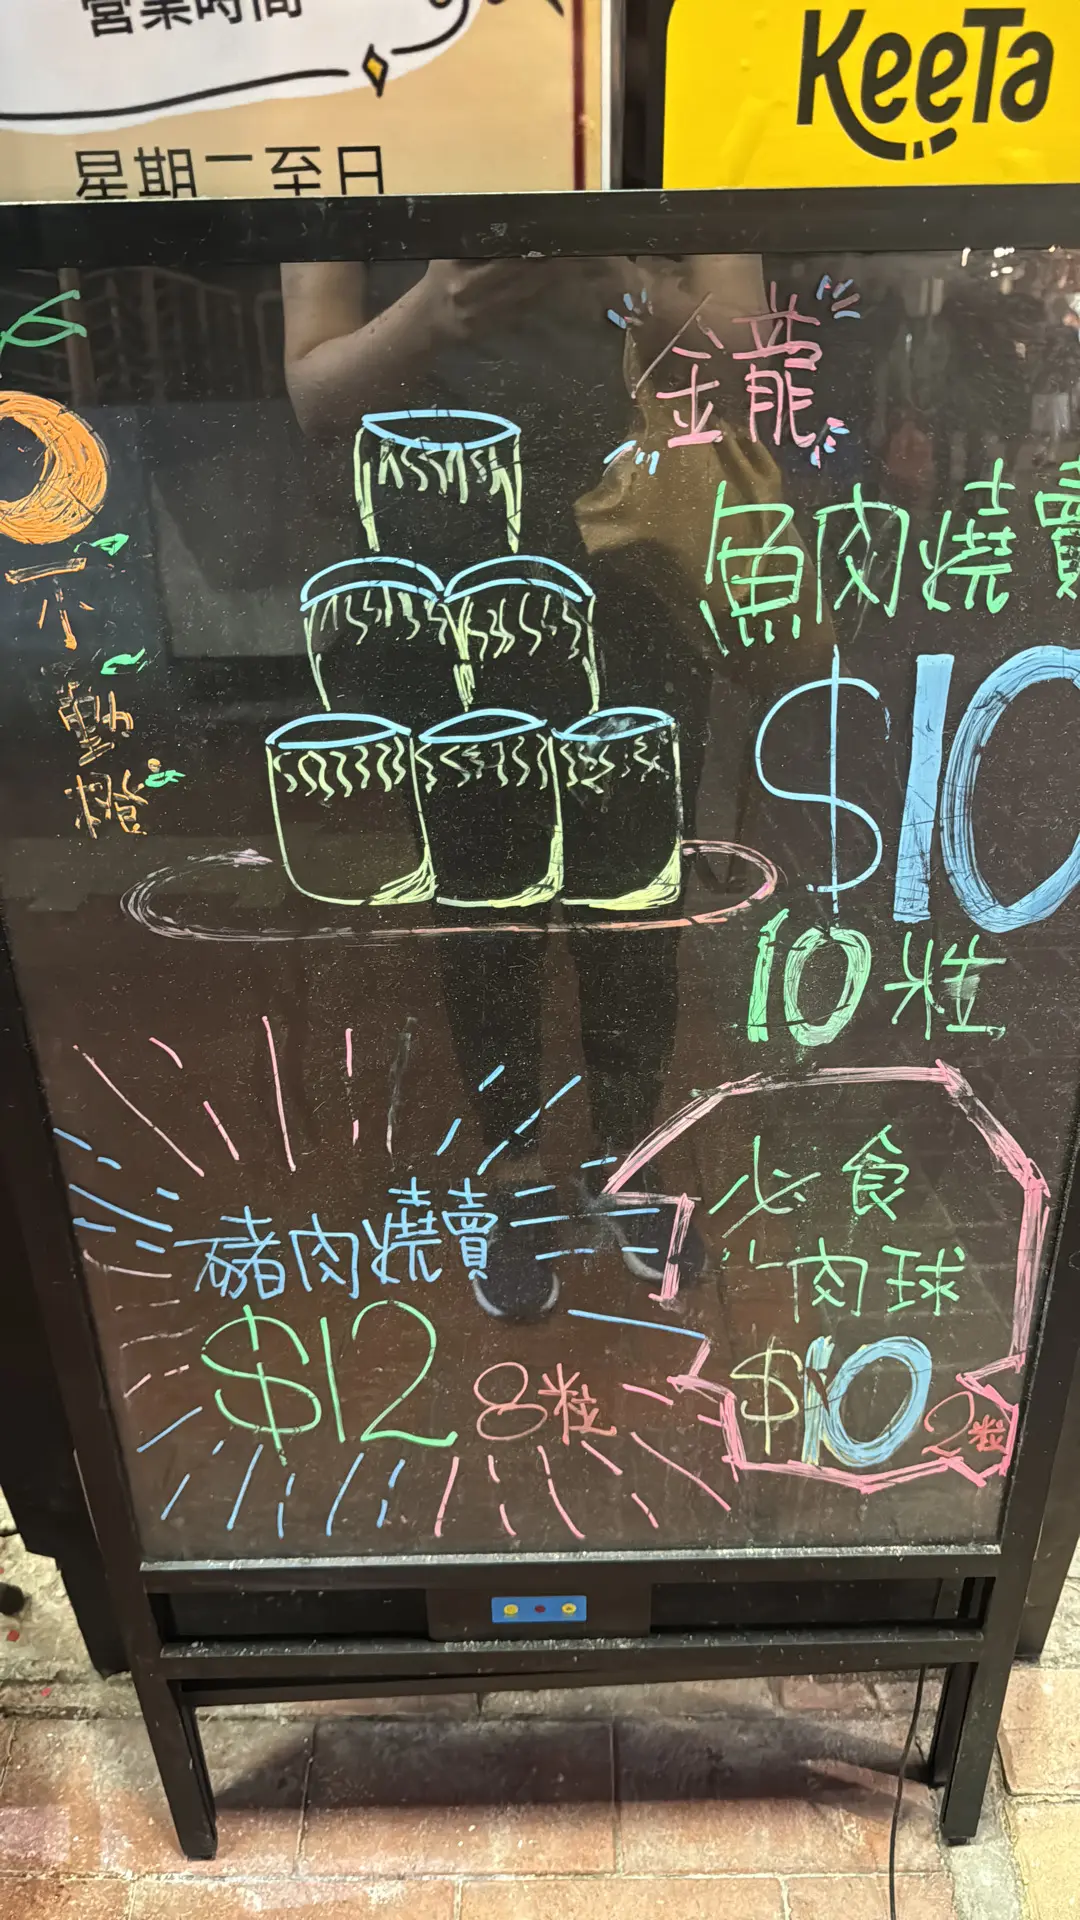 營業時間
星期二至日
KeeTa
金龍
魚肉燒賣
$10
10粒
一
不
動
橙
豬肉燒賣
$12 8粒
必食
肉球
$10 2粒